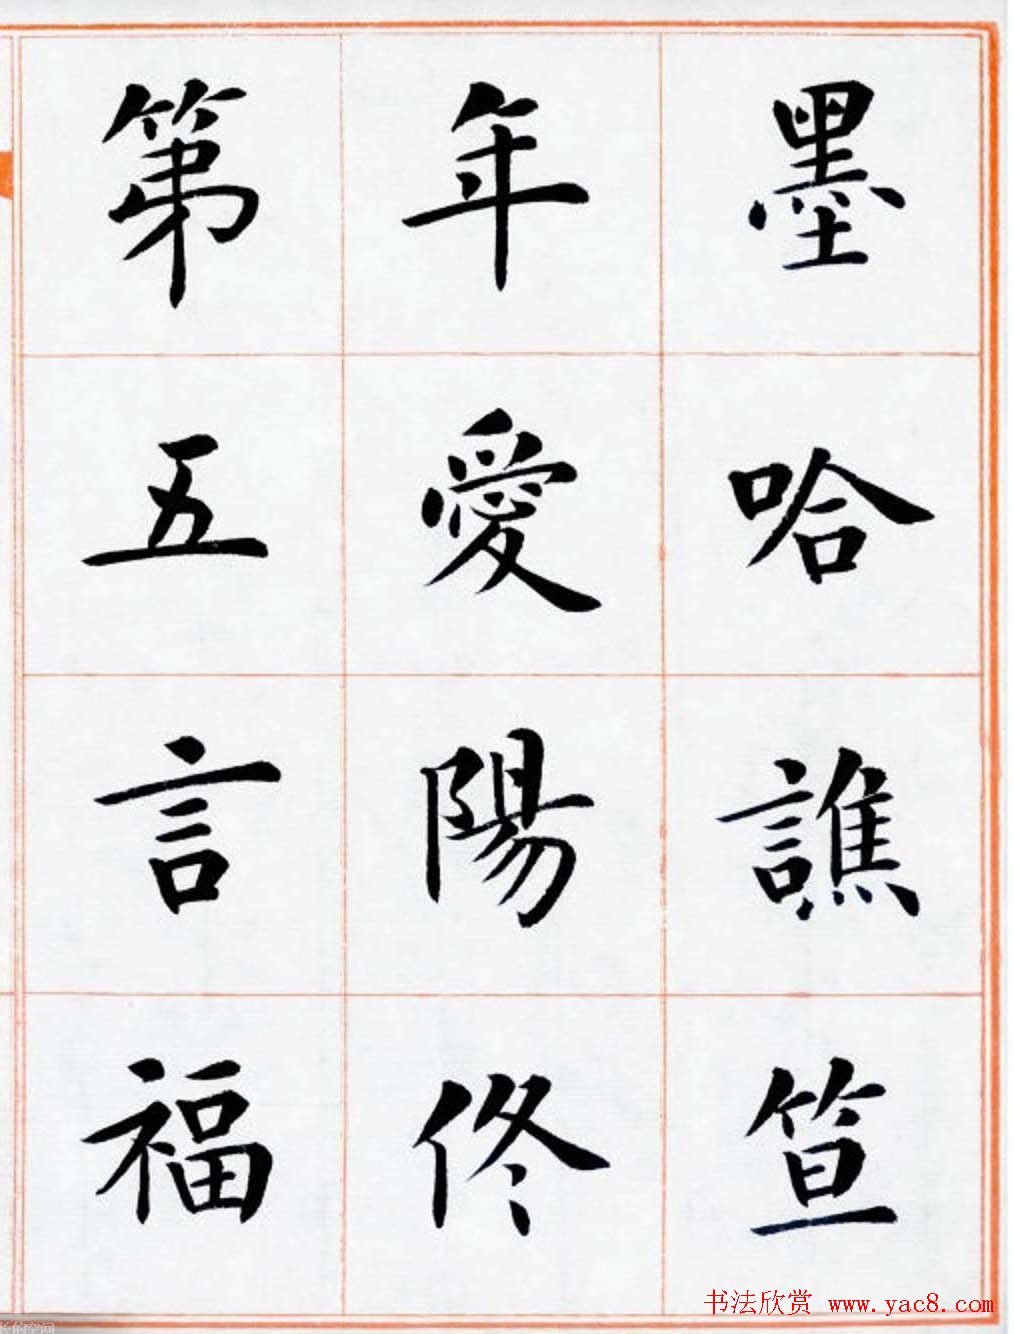 墨哈譙笪
年愛陽佟
第五言福
书法欣赏 www.yac8.com